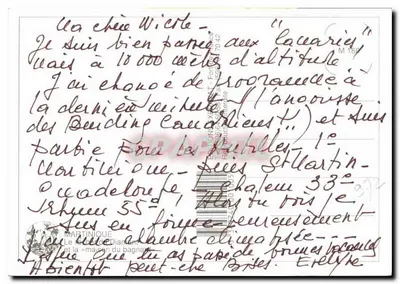 Ma chère Nicole -
Je suis bien passée aux "Canaries"
mais à 10 000 mètres d'altitude
J'ai changé de programme à
la dernière minute (l'angoisse
des Building Canariens !) et suis
partie pour les Antilles - 1°
Martinique - puis St Martin -
Guadeloupe, chaleur 33° -
55° ! Alors tu vois je
suis en forme - heureusement
j'ai une chambre climatisée ---
que tu as passé de bonnes vacances
A bientôt peut-être Bises. Evelyne
MARTINIQUE
et la "maison du bagnard"